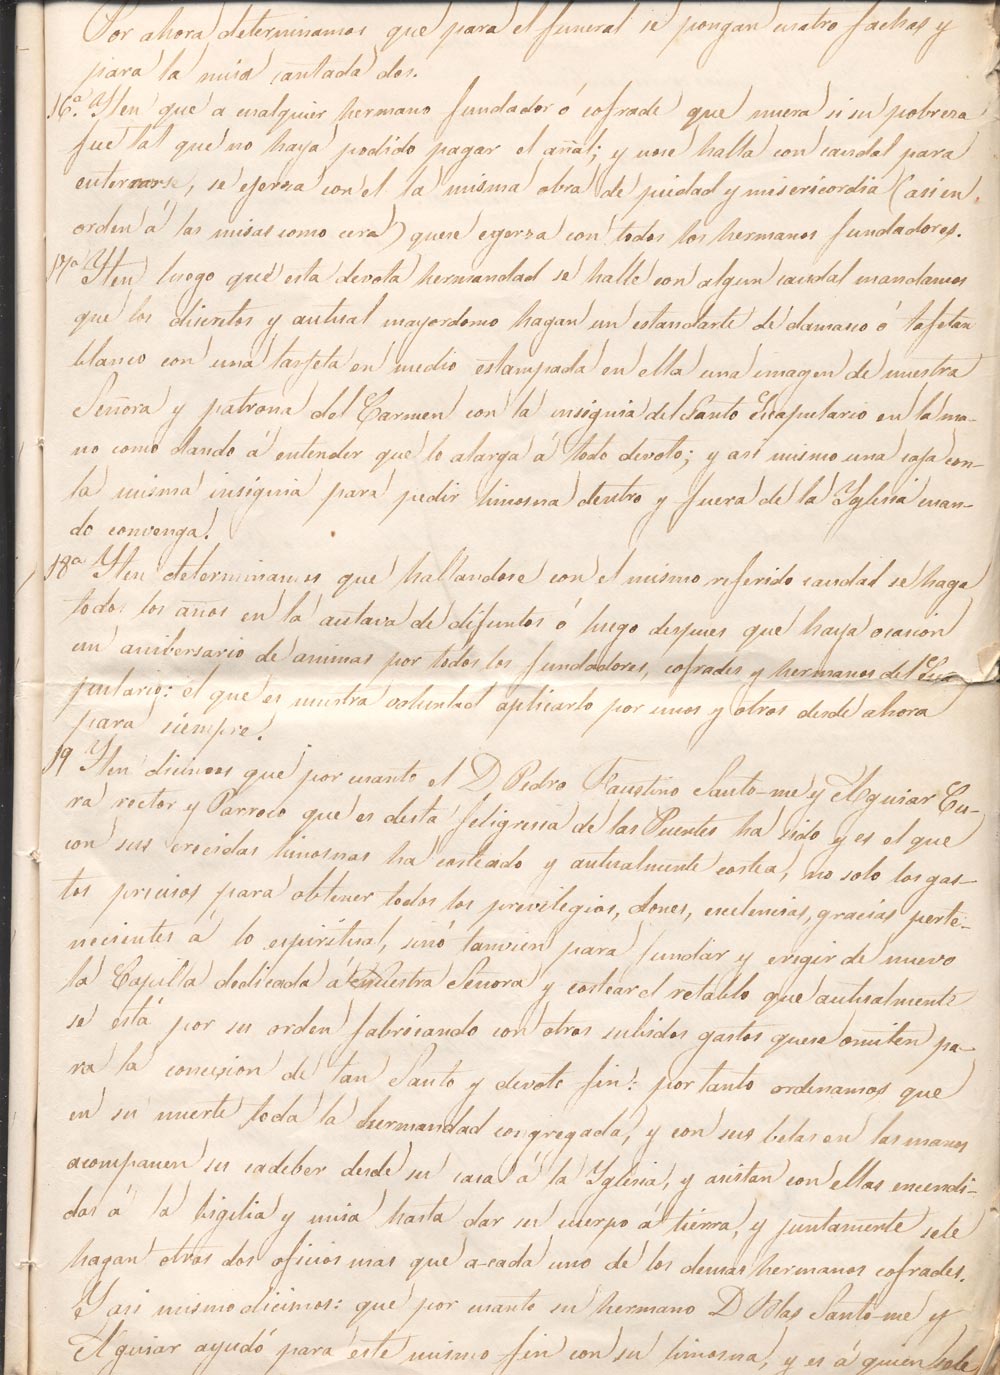 Por ahora determinamos que para el funeral se pongan cuatro fachas y
para la misa cantada dos.
16.ª Yten que a cualquier hermano fundador ó cofrade que muera si su pobreza
fue tal que no haya podido pagar el añal; y nose halla con caudal para
enterrarse, se ejerza con el la misma obra de piedad y misericordia (asi en
orden á las misas como cera) quese egerza con todos los hermanos fundadores.
17ª Yten luego que esta devota hermandad se halle con algun caudal mandamos
que los discretos y actual mayordomo hagan un estandarte de damasco ó tafetan
blanco con una tarjeta en medio estampada en ella una imagen de nuestra
Señora y patrona del Carmen con la insignia del Santo Escapulario en la ma-
no como dando á entender que lo alarga á todo devoto; y asi mismo una caja con
la misma insignia para pedir limosna dentro y fuera de la Yglesia cuan-
do convenga.
18ª Yten determinamos que hallandose con el mismo referido caudal se haga
todos los años en la autava de difuntos ó luego despues que haya ocasion
un anibersario de animas por todos los fundadores, cofrades y hermanos del Esca
pulario: el que es nuestra voluntad aplicarlo por unos y otros desde ahora
para siempre.
19 Yten dicimos que por cuanto el D. Pedro Faustino Santo-me y Alguiar Cu-
ra rector y Parroco que es desta feligresia de las Puentes ha sido y es el que
con sus crecidas limosnas ha costeado y actualmente costea, no solo los gas-
tos precisos para obtener todos los privilegios, dones, exelencias, gracias perte-
necientes á lo espiritual, sinó tanvien para fundar y erigir de nuevo
la Capilla dedicada á nuestra Señora y costear el retablo que actualmente
se está por su orden fabricando con otros subidos gastos quese omiten pa-
ra la concesion de tan Santo y devoto fin: por tanto ordenamos que
en su muerte toda la hermandad congregada, y con sus belas en las manos
acompañen su cadeber desde su casa á la Yglesia, y asistan con ellas encendi-
das á la bigilia y misa hasta dar su cuerpo á tierra, y juntamente sele
hagan otros dos oficios mas que a-cada uno de los demas hermanos cofrades.
Y asi mismo dicimos: que por cuanto su hermano D. Blas Santo-me y
Alguiar ayudó para este mismo fin con su limosna, y es á quien sele